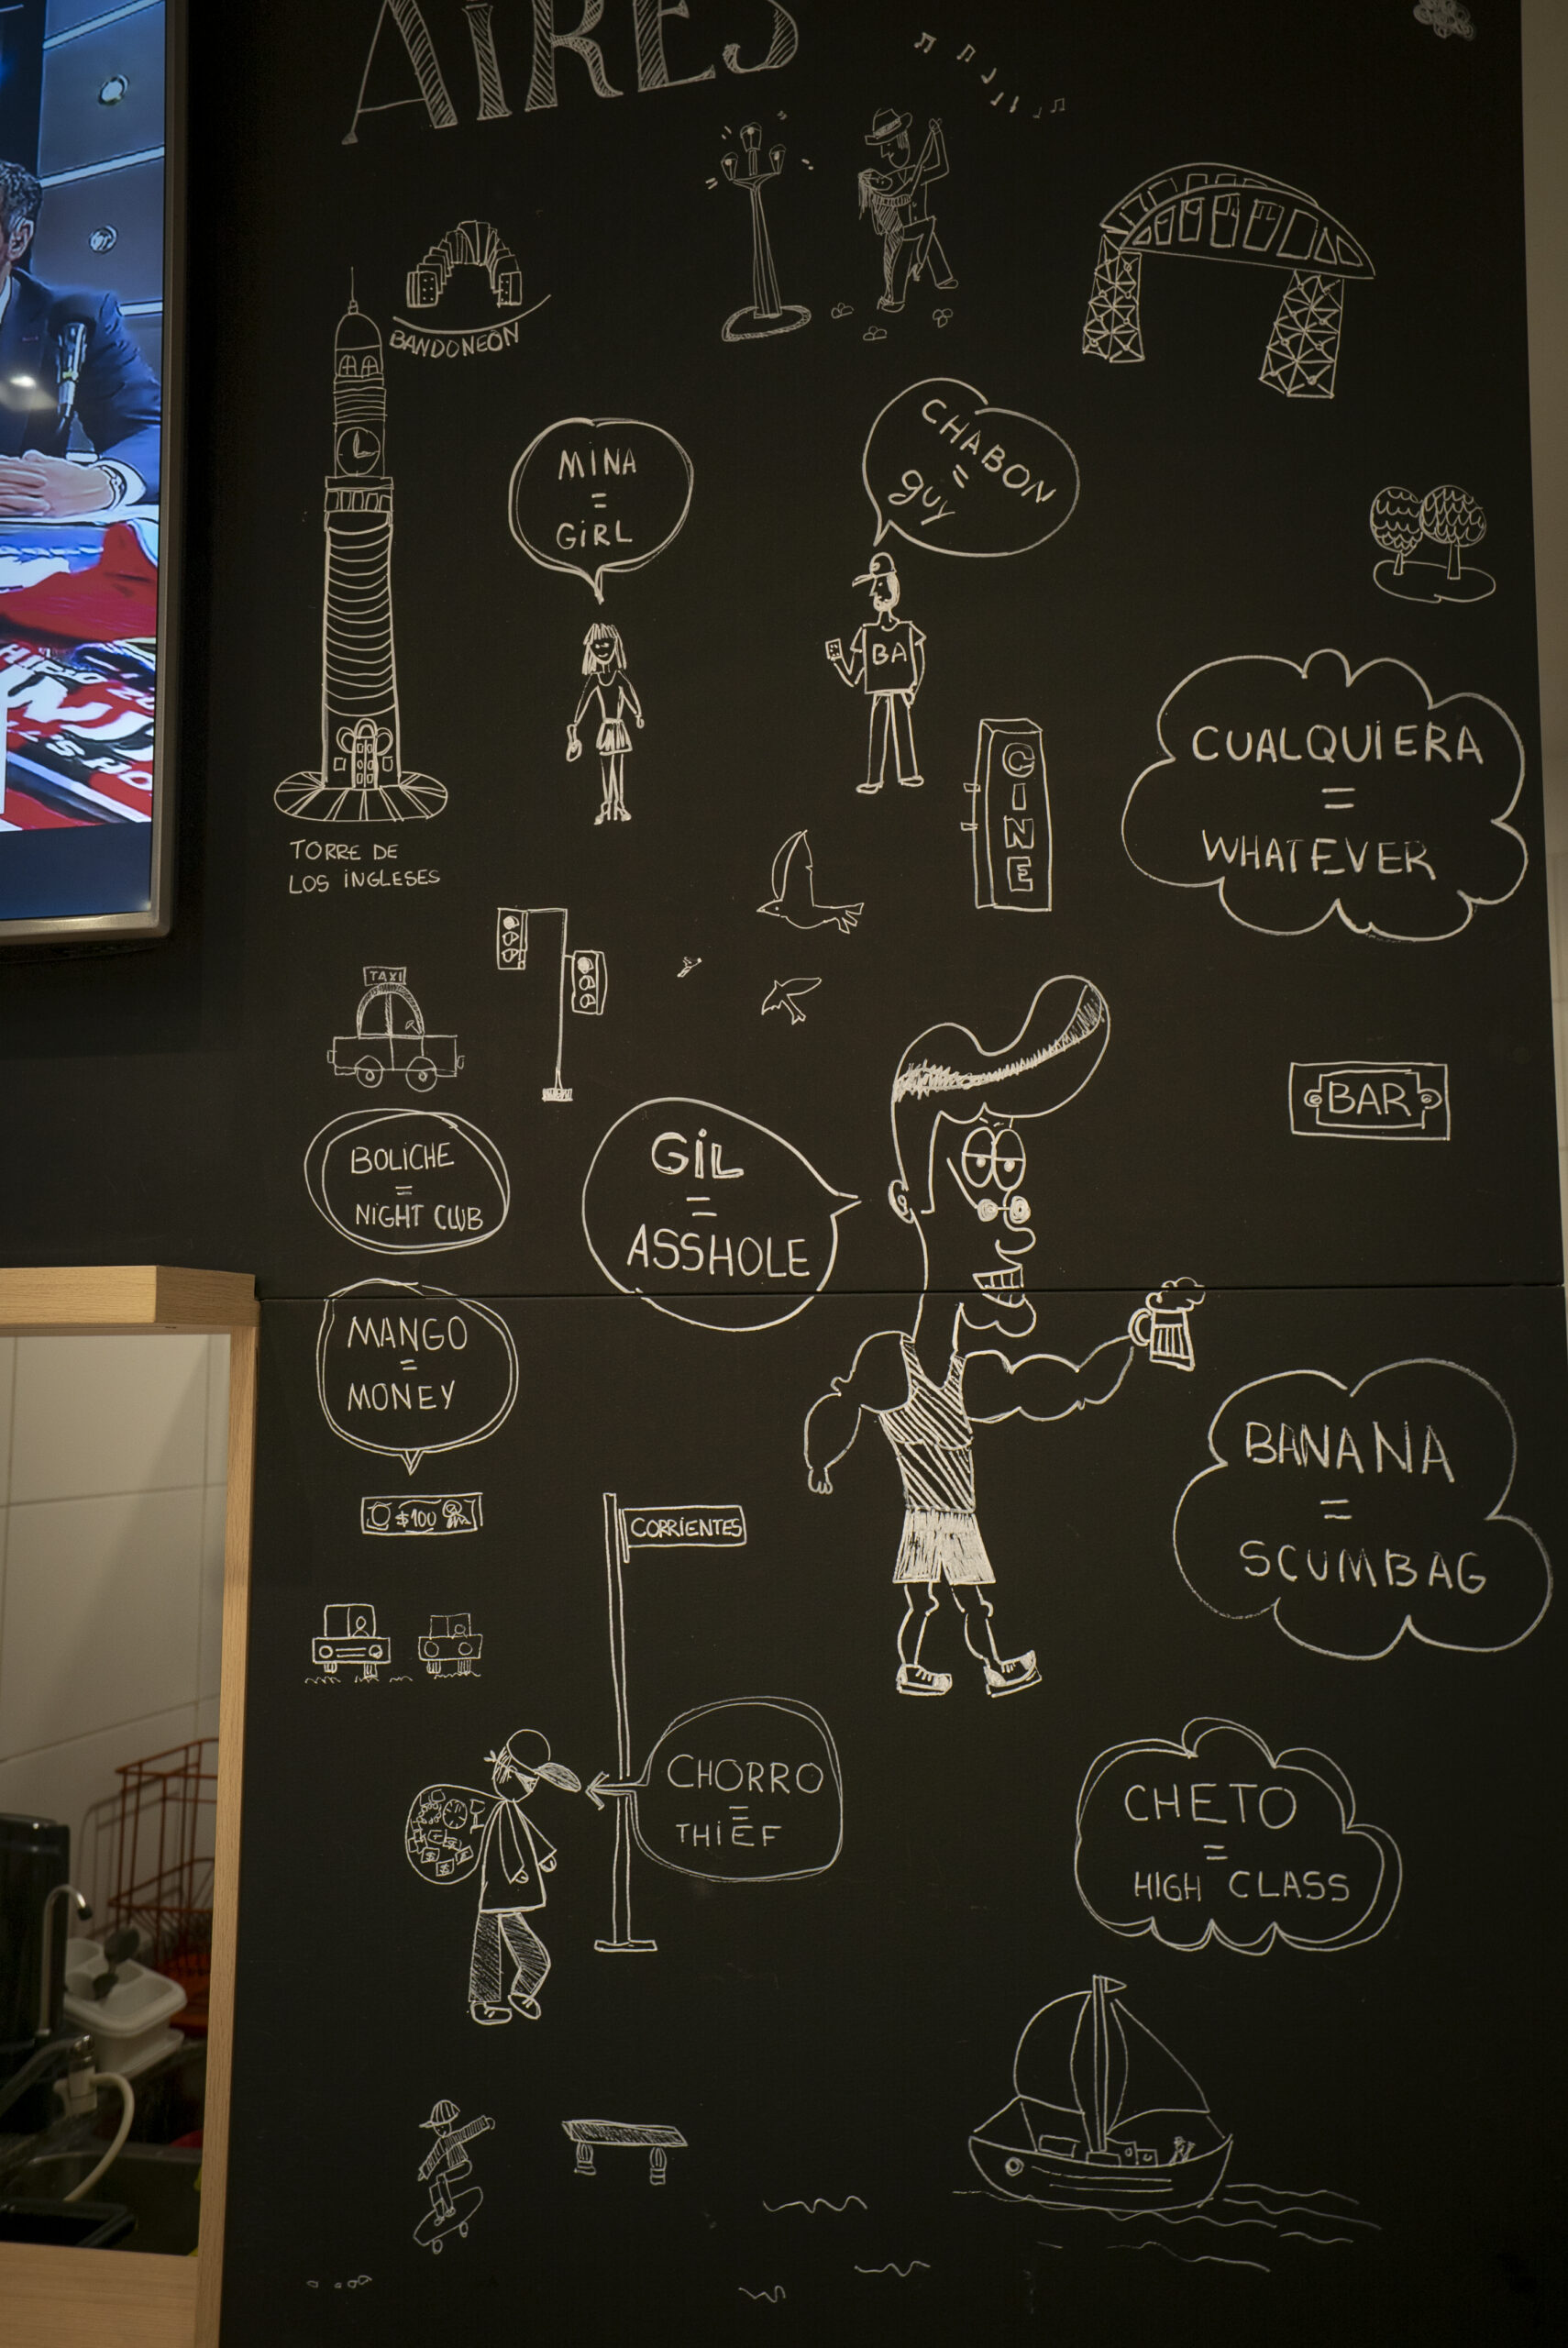 AIRES
BANDONEÓN
MINA
=
GIRL
CHABON
=
guy
BA
CINE
CUALQUIERA
=
WHATEVER
TORRE DE
LOS INGLESES
TAXI
BAR
BOLICHE
=
NIGHT CLUB
GIL
=
ASSHOLE
MANGO
=
MONEY
$100
CORRIENTES
BANANA
=
SCUMBAG
CHORRO
=
THIEF
CHETO
=
HIGH CLASS